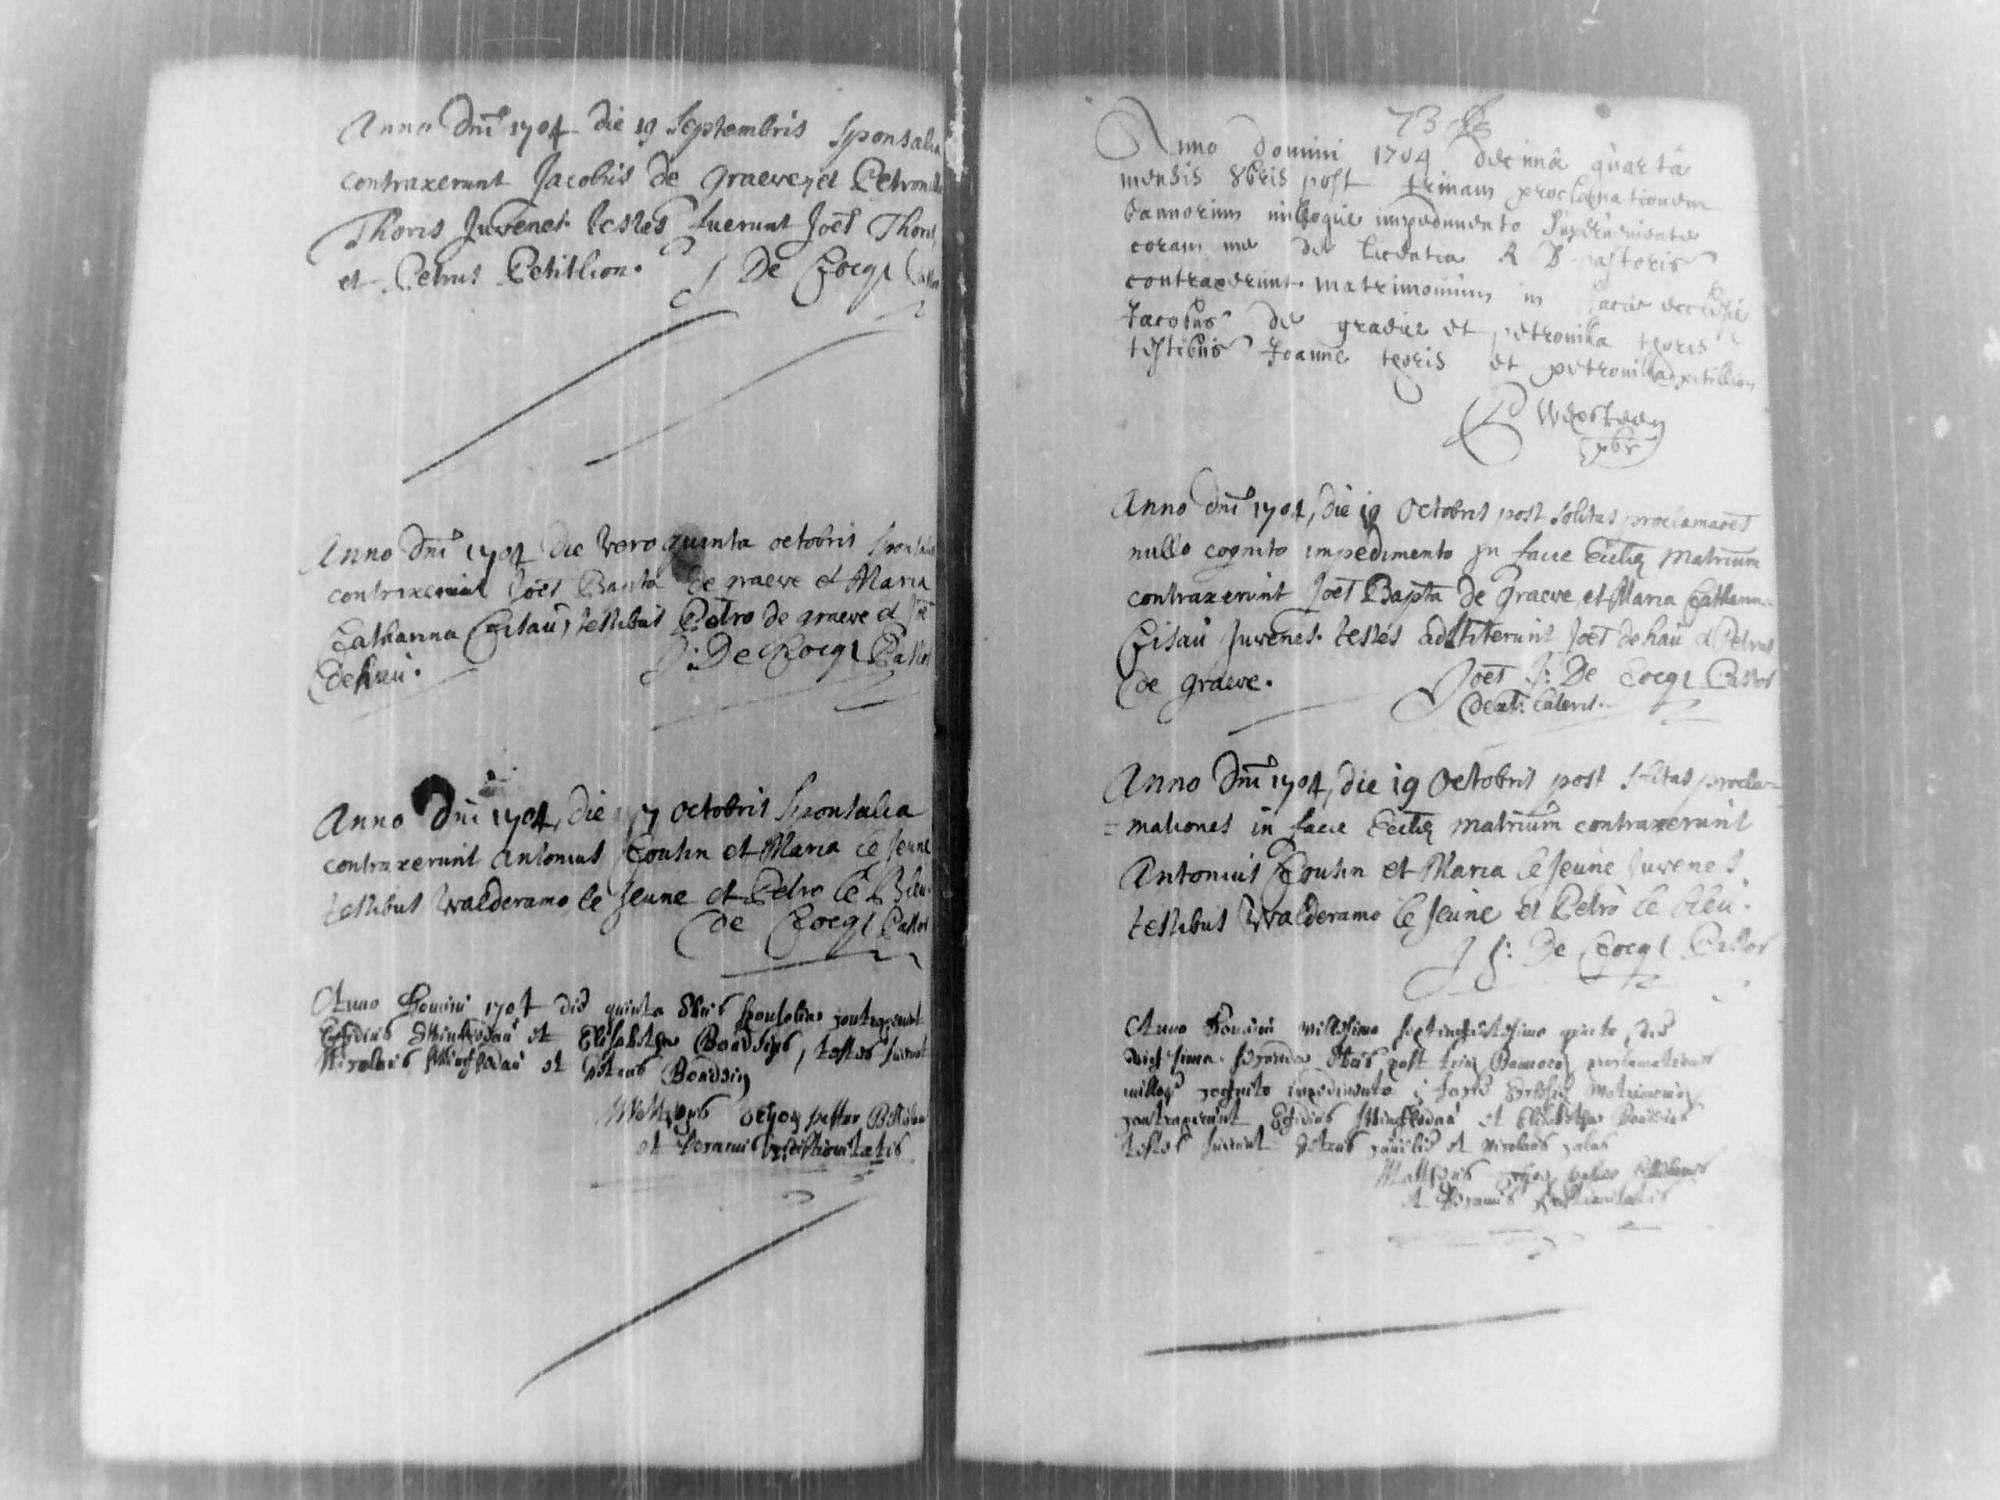 Anno Dni 1704 die 19 Septembris Sponsalia
contraxerunt Jacobus de graeve, et Petronilla
Thoris Juvenes. testes fuerunt Joes Thoris
et Petrus Petillion. J De Cocq Pastor
Anno Dni 1704 die vero quinta octobris Sponsalia
contraxerunt Joes Bapta de graeve et Maria
Catharina Cisau, testibus Petro de graeve et
dehau. J: De Cocq Pastor
Anno Dni 1704, die 17 octobris Sponsalia
contraxerunt Antonius Cousin et Maria le Jeune
testibus Walderamo le Jeune et Petro le Bleu.
De Cocq Pastor
Anno Domini 1704 die quinta 8bris sponsalia contraxerunt
Egidius et Elisabetha, testes fuerunt
Nicolaus et Petrus
pastor
et decanus christianitatis
73
Anno Domini 1704 decima quarta
mensis 8bris post trinam proclamationem
bannorum nulloque impedimento superveniente
coram me de licentia R D pastoris
contraxerunt matrimonium in facie ecclesie
Jacobus de graeve et petronilla teoris
testibus Joanne teoris et petronilla petillion
pbr
Anno Dni 1704, die 19 Octobris post solitas proclamaoes
nullo cognito impedimento in facie Eccliae Matrium
contraxerunt Joes Bapta de Graeve, et Maria Catharina
Cisau Juvenes. testes adstiterunt Joes dehau et Petrus
de graeve. Joes J: De Cocq Pastor
Anno Dni 1704, die 19 Octobris post solitas procla=
=mationes in facie Eccliae Matrium contraxerunt
Antonius Cousin et Maria le Jeune Juvenes.
testibus Walderamo le Jeune et Petro le bleu.
J J: De Cocq Pastor
Anno Domini millesimo septingentesimo quarto, die
vigesima secunda 8bris post proclamationes
nulloque cognito impedimento facie Ecclesie Matrimonium
contraxerunt Egidius et Elisabetha
testes fuerunt Petrus et Nicolaus
pastor
et Decanus christianitatis